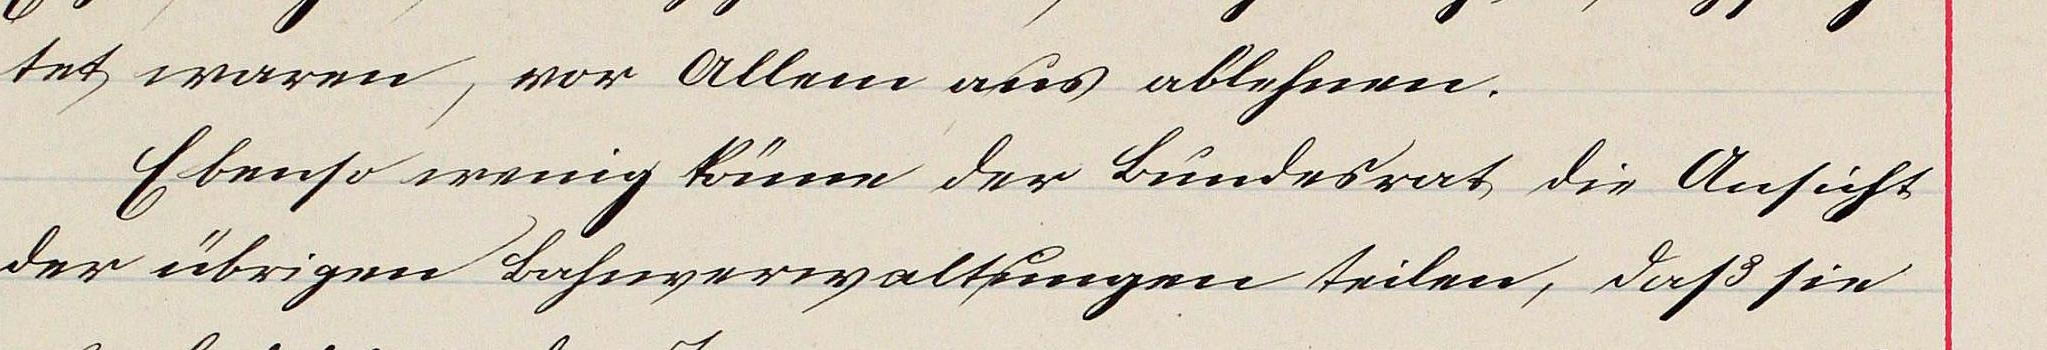 tet waren, vor Allem aus ablehnen.
Ebenso wenig könne der Bundesrat die Ansicht
der übrigen Bahnverwaltungen teilen, daß sie